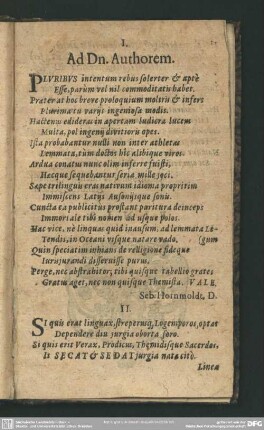 I.
Ad Dn. Authorem.
PLVRIBVS intentum rebus solerter & aptè
Esse, parùm vel nil commoditatis habet.
Præterat hoc breve proloquium molitis & infers
Plurima tu varijs ingeniosa modis.
Hactenus edideras in apertam ludicra lucem
Multa, pol ingenij divitioris opes.
Ista probabantur nulli non inter athletas
Lemmata, tùm doctis hîc alibique viris.
Ardua conatu nunc olim inferre fuisti,
Hæcque sequebantur seria mille joci.
Sæpe trilinguis eras nativum idioma proprium
Immiscens Latijs Ausonijsque sonis.
Cuncta ea publicitus prostant partura deinceps
Immortale tibi nomen ad usque polos.
Hac vice, nè linquas quid inausum, ad lemmata Le-
Tendis, in Oceani visque natare vado. (gum
Quin speciatim inhians de religione fideque
Iurisjurandi disseruisse purus.
Perge, nec abstrahitor, tibi quisque tabellio grates
Gratus aget, nec non quisque Themista. VALE.
Seb. Hornmoldt, D.
II.
SI quis erat linguax, streperusq;, Logemporos, optat
Dependere diu jurgia oborta foro.
Si quis erit Verax, Prodicus, Themidisque Sacerdos,
Is SECAT & SEDAT jurgia nata citò.
Linea